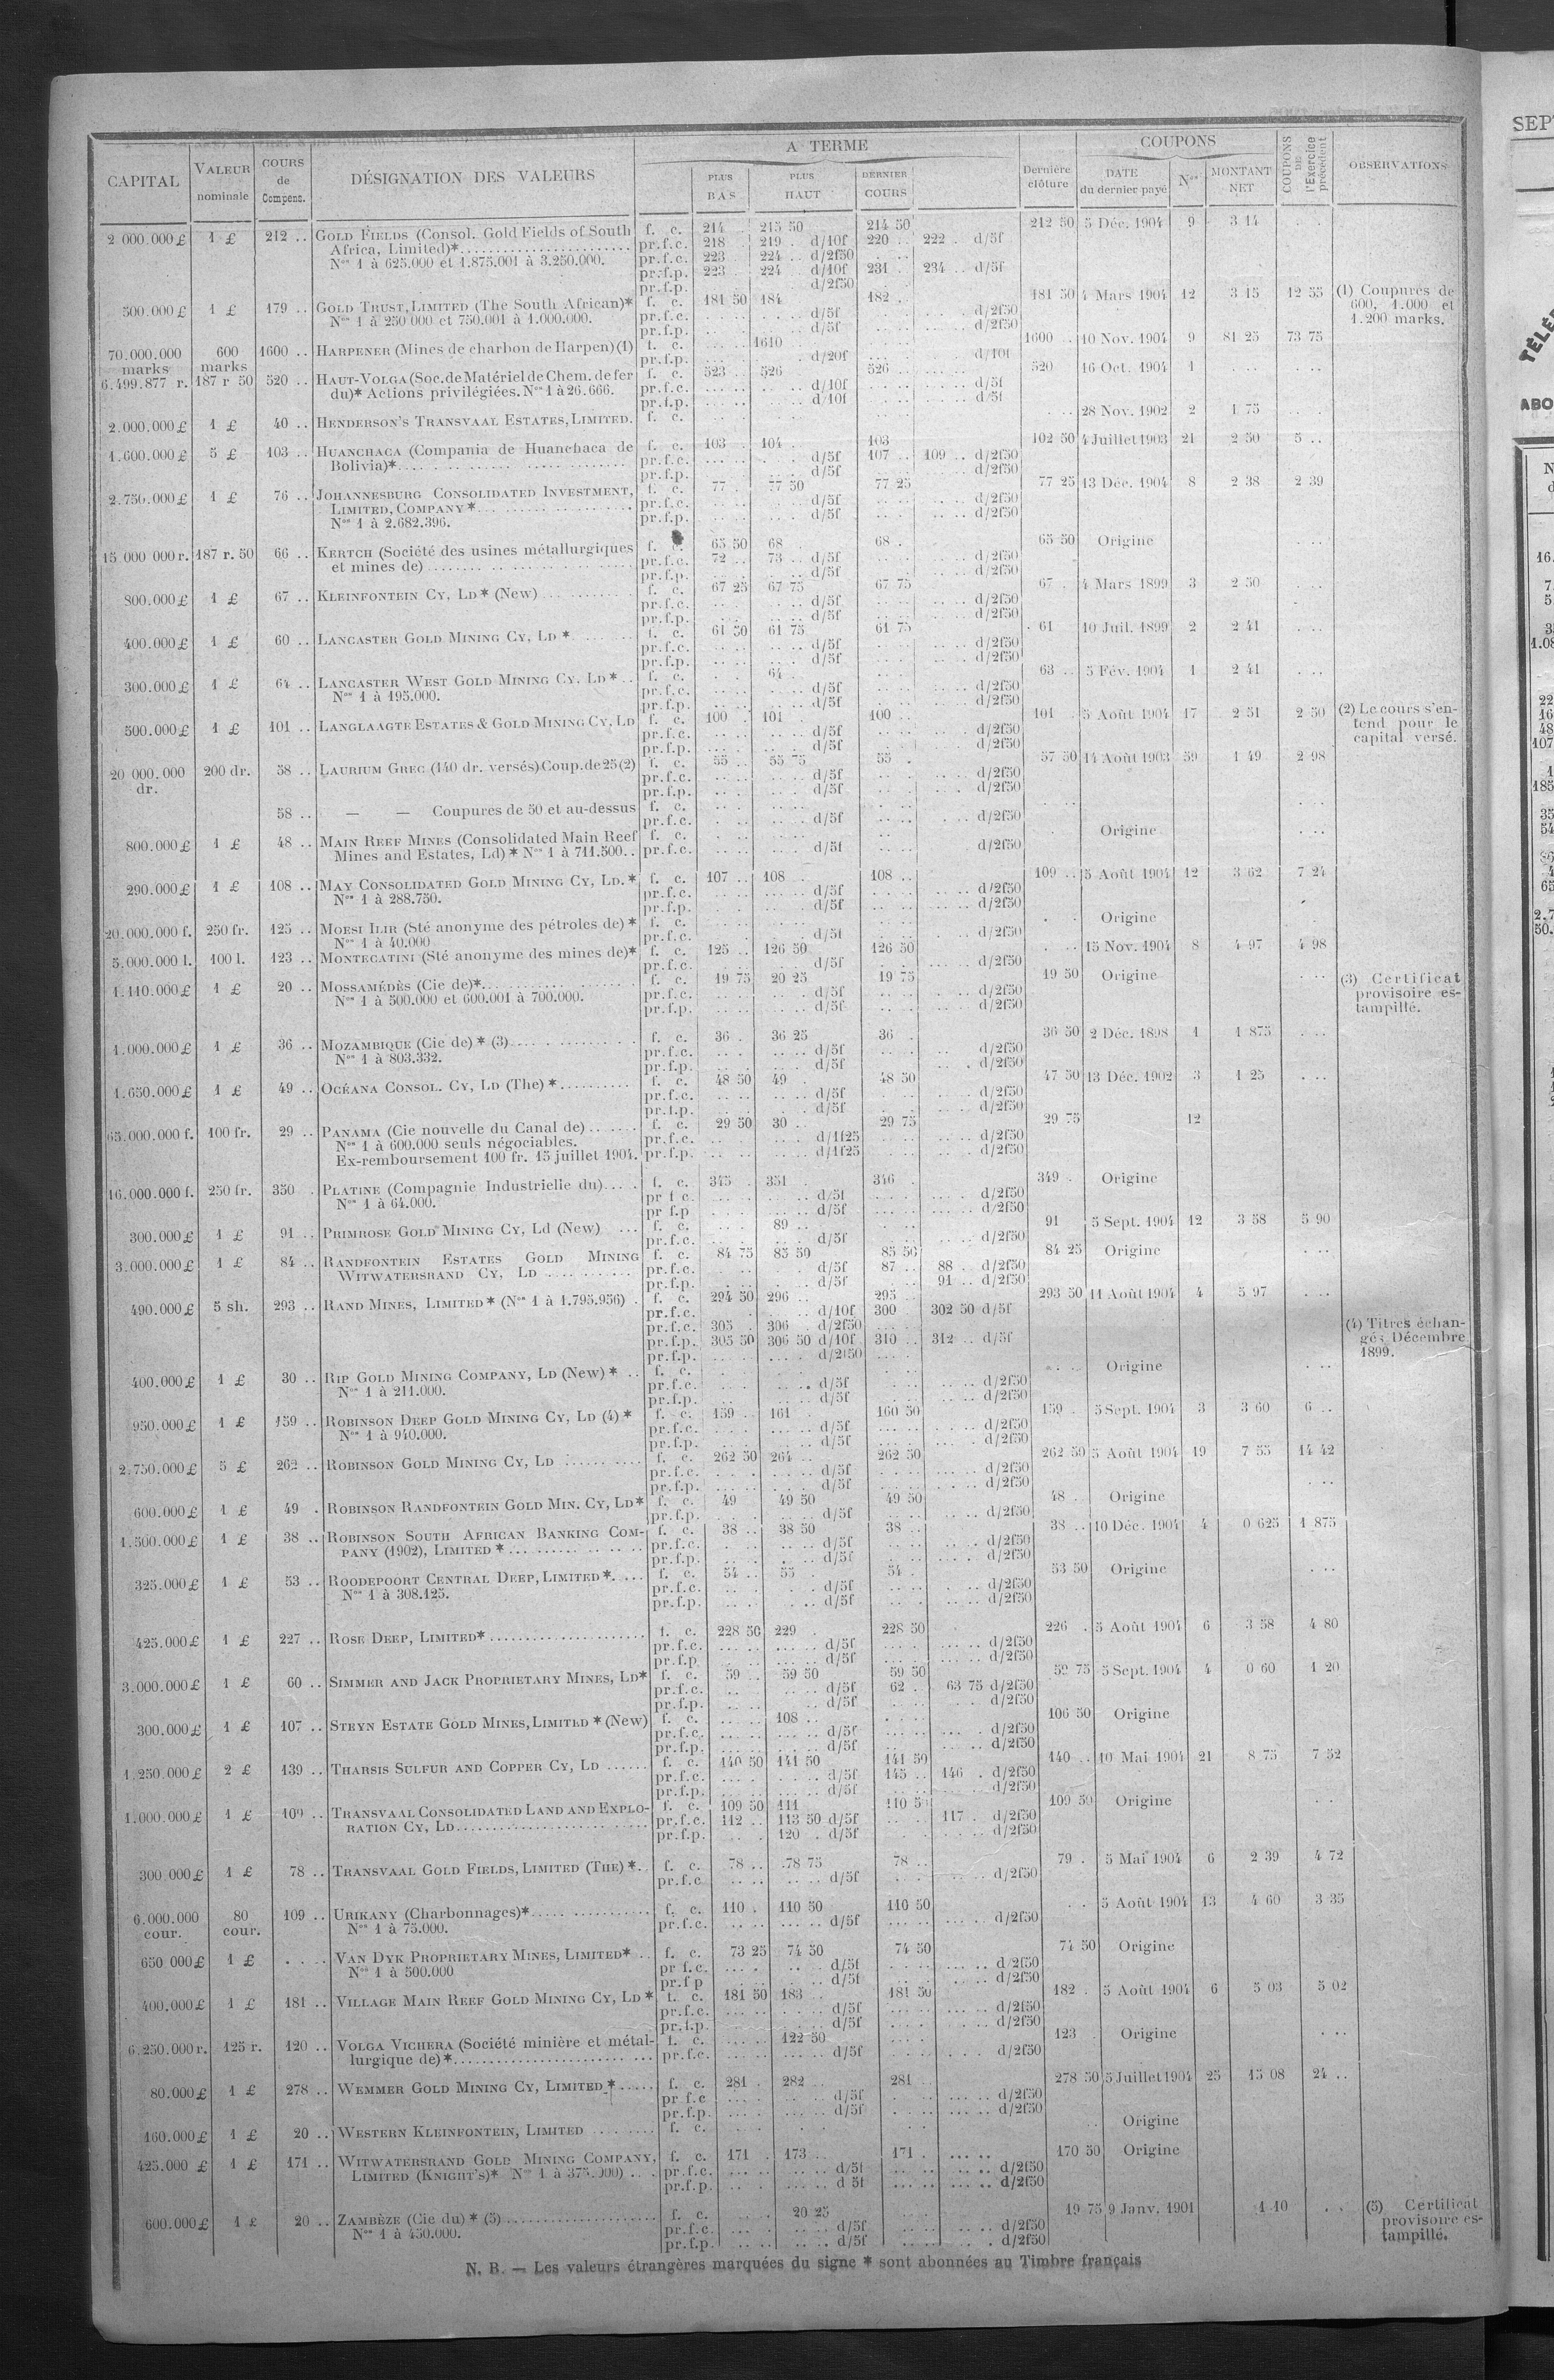 CAPITAL | VALEUR nominale | COURS de Compens. | DÉSIGNATION DES VALEURS | A TERME | PLUS BAS | PLUS HAUT | DERNIER COURS | Dernière clôture | COUPONS | DATE du dernier payé | Nos | MONTANT NET | COUPONS DE l'Exercice précédent | OBSERVATIONS
2 000.000 £ | 1 £ | 212 .. | GOLD FIELDS (Consol. Gold Fields of South | f. c. | 214 | 215 50 | 214 50 | 212 50 | 5 Déc. 1904 | 9 | 3 14
Africa, Limited)* | pr.f.c. | 218 | 219 .. d/10f | 220 .. | 222 . d/5f
Nos 1 à 625.000 et 1.875.001 à 3.250.000. | pr.f.c. | 223 | 224 .. d/2f50
pr.f.p. | 223 | 224 d/10f | 231 . | 234 .. d/5f
pr.f.p. | d/2f50
500.000 £ | 1 £ | 179 .. | GOLD TRUST, LIMITED (The South African)* | f. c. | 181 50 | 184 | 182 .. | 181 50 | 4 Mars 1904 | 12 | 3 15 | 12 55 | (1) Coupures de
Nos 1 à 250 000 et 750.001 à 1.000.000. | pr.f.c. | d/5f | d/2f50 | 600, 1.000 et
pr.f.p. | d/5f | d/2f50 | 1.200 marks.
70.000.000 marks | 600 marks | 1600 .. | HARPENER (Mines de charbon de Harpen) (1) | f. c. | 1610 | 1600 .. | 10 Nov. 1904 | 9 | 81 25 | 73 75
pr.f.p. | d/20f | d/10f
6.499.877 r. | 187 r 50 | 520 .. | HAUT-VOLGA (Soc. de Matériel de Chem. de fer | f. c. | 523 .. | 526 | 526 | 520 | 16 Oct. 1904 | 1
du)* Actions privilégiées. Nos 1 à 26.666. | pr.f.c. | d/10f | d/5f
pr.f.p. | d/10f | d/5f
2.000.000 £ | 1 £ | 40 .. | HENDERSON'S TRANSVAAL ESTATES, LIMITED. | f. c. | 28 Nov. 1902 | 2 | 1 75
1.600.000 £ | 5 £ | 103 .. | HUANCHACA (Compania de Huanchaca de | f. c. | 103 | 104 | 103 | 102 50 | 4 Juillet 1903 | 21 | 2 50 | 5 ..
Bolivia)* | pr.f.c. | d/5f | 107 .. | 109 .. d/2f50
pr.f.p. | d/5f | d/2f50
2.750.000 £ | 1 £ | 76 .. | JOHANNESBURG CONSOLIDATED INVESTMENT, | f. c. | 77 . | 77 50 | 77 25 | 77 25 | 13 Déc. 1904 | 8 | 2 38 | 2 39
LIMITED, COMPANY * | pr.f.c. | d/5f | d/2f50
Nos 1 à 2.682.396. | pr.f.p. | d/5f | d/2f50
15 000 000 r. | 187 r. 50 | 66 .. | KERTCH (Société des usines métallurgiques | f. c. | 65 50 | 68 . | 68 . | 65 50 | Origine
et mines de) | pr.f.c. | 72 .. | 73 .. d/5f | d/2f50
pr.f.p. | d/5f | d/2f50
800.000 £ | 1 £ | 67 .. | KLEINFONTEIN CY, LD * (New) | f. c. | 67 25 | 67 75 | 67 75 | 67 . | 4 Mars 1899 | 3 | 2 50
pr.f.c. | d/5f | d/2f50
pr.f.p. | d/5f | d/2f50
400.000 £ | 1 £ | 60 .. | LANCASTER GOLD MINING CY, LD * | f. c. | 61 50 | 61 75 | 61 75 | 61 | 10 Juil. 1899 | 2 | 2 41
pr.f.c. | d/5f | d/2f50
pr.f.p. | d/5f | d/2f50
300.000 £ | 1 £ | 64 .. | LANCASTER WEST GOLD MINING CY. LD * | f. c. | 64 | 63 .. | 5 Fév. 1904 | 1 | 2 41
Nos 1 à 195.000. | pr.f.c. | d/5f | d/2f50
pr.f.p. | d/5f | d/2f50
500.000 £ | 1 £ | 101 .. | LANGLAAGTE ESTATES & GOLD MINING CY, LD | f. c. | 100 . | 101 | 100 .. | 101 | 5 Août 1904 | 17 | 2 51 | 2 50 | (2) Le cours s'en-
pr.f.c. | d/5f | d/2f50 | tend pour le
pr.f.p. | d/5f | d/2f50 | capital versé.
20 000.000 dr. | 200 dr. | 58 .. | LAURIUM GREC (140 dr. versés) Coup. de 25 (2) | f. c. | 55 .. | 55 75 | 55 . | 57 50 | 14 Août 1903 | 59 | 1 49 | 2 98
pr.f.c. | d/5f | d/2f50
pr.f.p. | d/5f | d/2f50
58 .. | — — Coupures de 50 et au-dessus | f. c.
pr.f.c. | d/5f | d/2f50
800.000 £ | 1 £ | 48 .. | MAIN REEF MINES (Consolidated Main Reef | f. c. | Origine
Mines and Estates, Ld) * Nos 1 à 711.500.. | pr.f.c. | d/5f | d/2f50
290.000 £ | 1 £ | 108 .. | MAY CONSOLIDATED GOLD MINING CY, LD. * | f. c. | 107 .. | 108 . | 108 .. | 109 .. | 5 Août 1904 | 12 | 3 62 | 7 24
Nos 1 à 288.750. | pr.f.c. | d/5f | d/2f50
pr.f.p. | d/5f | d/2f50
20.000.000 f. | 250 fr. | 125 .. | MOESI ILIR (Sté anonyme des pétroles de) * | f. c. | Origine
Nos 1 à 40.000 | pr.f.c. | d/5f | d/2f50
5.000.000 l. | 100 l. | 123 .. | MONTECATINI (Sté anonyme des mines de)* | f. c. | 125 .. | 126 50 | 126 50 | 15 Nov. 1904 | 8 | 4 97 | 4 98
pr.f.c. | d/5f | d/2f50
1.110.000 £ | 1 £ | 20 .. | MOSSAMÉDÈS (Cie de)* | f. c. | 19 75 | 20 25 | 19 75 | 19 50 | Origine | (3) Certificat
Nos 1 à 500.000 et 600.001 à 700.000. | pr.f.c. | d/5f | d/2f50 | provisoire es-
pr.f.p. | d/5f | d/2f50 | tampillé.
1.000.000 £ | 1 £ | 36 .. | MOZAMBIQUE (Cie de) * (3) | f. c. | 36 . | 36 25 | 36 . | 36 50 | 2 Déc. 1898 | 1 | 1 875
Nos 1 à 803.332. | pr.f.c. | d/5f | d/2f50
pr.f.p. | d/5f | d/2f50
1.650.000 £ | 1 £ | 49 .. | OCÉANA CONSOL. CY, LD (The) * | f. c. | 48 50 | 49 . | 48 50 | 47 50 | 13 Déc. 1902 | 3 | 1 25
pr.f.c. | d/5f | d/2f50
pr.f.p. | d/5f | d/2f50
65.000.000 f. | 100 fr. | 29 .. | PANAMA (Cie nouvelle du Canal de) | f. c. | 29 50 | 30 . | 29 75 | 29 75 | 12
Nos 1 à 600.000 seuls négociables. | pr.f.c. | d/1f25 | d/2f50
Ex-remboursement 100 fr. 15 juillet 1904. | pr.f.p. | d/1f25 | d/2f50
16.000.000 f. | 250 fr. | 350 . | PLATINE (Compagnie Industrielle du) | f. c. | 345 | 351 . | 346 . | 349 . | Origine
Nos 1 à 64.000. | pr f c. | d/5f | d/2f50
pr f.p | d/5f | d/2f50
300.000 £ | 1 £ | 91 .. | PRIMROSE GOLD MINING CY, Ld (New) | f. c. | 89 .. | 91 | 5 Sept. 1904 | 12 | 3 58 | 5 90
pr.f.c. | d/5f | d/2f50
3.000.000 £ | 1 £ | 84 .. | RANDFONTEIN ESTATES GOLD MINING | f. c. | 84 75 | 85 50 | 85 50 | 84 25 | Origine
WITWATERSRAND CY, LD | pr.f.c. | d/5f | 87 .. | 88 . d/2f50
pr.f.p. | d/5f | 91 .. d/2f50
490.000 £ | 5 sh. | 293 .. | RAND MINES, LIMITED * (Nos 1 à 1.795.956) | f. c. | 294 50 | 296 .. | 295 .. | 293 50 | 11 Août 1904 | 4 | 5 97
pr.f.c. | d/10f | 300 . | 302 50 d/5f
pr.f.c. | 305 . | 306 . d/2f50 | (4) Titres échan-
pr.f.p. | 305 50 | 306 50 d/10f | 310 .. | 312 .. d/5f | gés Décembre
pr.f.p. | d/2f50 | 1899.
400.000 £ | 1 £ | 30 .. | RIP GOLD MINING COMPANY, LD (New) * | f. c. | Origine
Nos 1 à 211.000. | pr.f.c. | d/5f | d/2f50
pr.f.p. | d/5f | d/2f50
950.000 £ | 1 £ | 159 .. | ROBINSON DEEP GOLD MINING CY, LD (4) * | f. c. | 159 .. | 161 . | 160 50 | 159 . | 5 Sept. 1904 | 3 | 3 60 | 6 ..
Nos 1 à 940.000. | pr.f.c. | d/5f | d/2f50
pr.f.p. | d/5f | d/2f50
2.750.000 £ | 5 £ | 262 .. | ROBINSON GOLD MINING CY, LD | f. c. | 262 50 | 264 .. | 262 50 | 262 50 | 5 Août 1904 | 19 | 7 55 | 14 42
pr.f.c. | d/5f | d/2f50
pr.f.p. | d/5f | d/2f50
600.000 £ | 1 £ | 49 . | ROBINSON RANDFONTEIN GOLD MIN. CY, LD* | f. c. | 49 | 49 50 | 49 50 | 48 . | Origine
pr.f.p. | d/5f | d/2f50
1.500.000 £ | 1 £ | 38 .. | ROBINSON SOUTH AFRICAN BANKING COM- | f. c. | 38 .. | 38 50 | 38 .. | 38 .. | 10 Déc. 1904 | 4 | 0 625 | 1 875
PANY (1902), LIMITED * | pr.f.c. | d/5f | d/2f50
pr.f.p. | d/5f | d/2f50
325.000 £ | 1 £ | 53 .. | ROODEPOORT CENTRAL DEEP, LIMITED * | f. c. | 54 .. | 55 . | 54 . | 53 50 | Origine
Nos 1 à 308.125. | pr.f.c. | d/5f | d/2f50
pr.f.p. | d/5f | d/2f50
425.000 £ | 1 £ | 227 .. | ROSE DEEP, LIMITED* | f. c. | 228 50 | 229 . | 228 50 | 226 . | 5 Août 1904 | 6 | 3 58 | 4 80
pr.f.c. | d/5f | d/2f50
pr.f.p. | d/5f | d/2f50
3.000.000 £ | 1 £ | 60 .. | SIMMER AND JACK PROPRIETARY MINES, LD* | f. c. | 59 .. | 59 50 | 59 50 | 59 75 | 5 Sept. 1904 | 4 | 0 60 | 1 20
pr.f.c. | d/5f | 62 .. | 63 75 d/2f50
pr.f.p. | d/5f | d/2f50
300.000 £ | 1 £ | 107 .. | STEYN ESTATE GOLD MINES, LIMITED * (New) | f. c. | 108 .. | 106 50 | Origine
pr.f.c. | d/5f | d/2f50
pr.f.p. | d/5f | d/2f50
1.250 000 £ | 2 £ | 139 .. | THARSIS SULFUR AND COPPER CY, LD | f. c. | 140 50 | 141 50 | 141 50 | 140 .. | 10 Mai 1904 | 21 | 8 75 | 7 52
pr.f.c. | d/5f | 145 .. | 146 . d/2f50
pr.f.p. | d/5f | d/2f50
1.000.000 £ | 1 £ | 109 .. | TRANSVAAL CONSOLIDATED LAND AND EXPLO- | f. c. | 109 50 | 111 | 110 50 | 109 50 | Origine
RATION CY, LD | pr.f.c. | 112 .. | 113 50 d/5f | 117 . d/2f50
pr.f.p. | 120 . d/5f | d/2f50
300 000 £ | 1 £ | 78 .. | TRANSVAAL GOLD FIELDS, LIMITED (THE) * | f. c. | 78 .. | 78 75 | 78 .. | 79 . | 5 Mai 1904 | 6 | 2 39 | 4 72
pr.f.c | d/5f | d/2f50
6.000.000 cour. | 80 cour. | 109 .. | URIKANY (Charbonnages)* | f. c. | 110 . | 110 50 | 110 50 | 5 Août 1904 | 13 | 4 60 | 3 35
Nos 1 à 75.000. | pr.f.c. | d/5f | d/2f50
650 000 £ | 1 £ | VAN DYK PROPRIETARY MINES, LIMITED* | f. c. | 73 25 | 74 50 | 74 50 | 74 50 | Origine
Nos 1 à 500.000 | pr f.c. | d/5f | d/2f50
pr.f p | d/5f | d/2f50
400.000 £ | 1 £ | 181 .. | VILLAGE MAIN REEF GOLD MINING CY, LD * | f. c. | 181 50 | 183 .. | 181 50 | 182 . | 5 Août 1904 | 6 | 5 03 | 5 02
pr.f.c. | d/5f | d/2f50
pr.f.p. | d/5f | d/2f50
6.250.000 r. | 125 r. | 120 .. | VOLGA VICHERA (Société minière et métal- | f. c. | 122 50 | 123 . | Origine
lurgique de) * | pr.f.c. | d/5f | d/2f50
80.000 £ | 1 £ | 278 .. | WEMMER GOLD MINING CY, LIMITED * | f. c. | 281 . | 282 .. | 281 .. | 278 50 | 5 Juillet 1904 | 25 | 15 08 | 24 ..
pr f.c | d/5f | d/2f50
pr.f.p. | d/5f | d/2f50
160.000 £ | 1 £ | 20 .. | WESTERN KLEINFONTEIN, LIMITED | f. c. | Origine
425.000 £ | 1 £ | 171 .. | WITWATERSRAND GOLD MINING COMPANY, | f. c. | 171 . | 173 .. | 171 . | 170 50 | Origine
LIMITED (KNIGHT'S)* Nos 1 à 375.000) | pr.f.c. | d/5f | d/2f50
pr.f.p. | d 5f | d/2f50
600.000 £ | 1 £ | 20 .. | ZAMBÈZE (Cie du) * (5) | f. c. | 20 25 | 19 75 | 9 Janv. 1901 | 1 10 | (5) Certificat
Nos 1 à 450.000. | pr.f.c. | d/5f | d/2f50 | provisoire es-
pr.f.p. | d/5f | d/2f50 | tampillé.
N. B. — Les valeurs étrangères marquées du signe * sont abonnées au Timbre français
SEPT
TÉLÉ
ABO